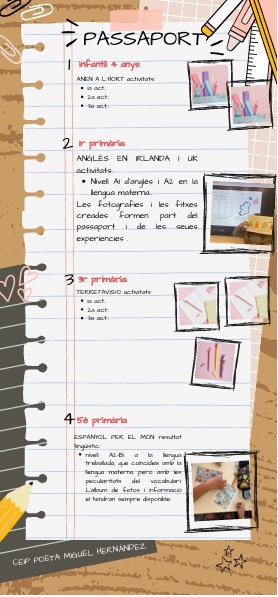 PASSAPORT
1 infantil 4 anys
ANEN A L'HORT activitats:
1a act.
2a act.
3a act.
2 1r primària
ANGLÈS EN IRLANDA I UK
activitats:
Nivell A1 d'anglès i A2 en la
llengua materna.
Les fotografies i les fitxes
creades formen part del
passaport i de les seues
experiencies .
3 3r primària
TERRETAVISIO activitats:
1a act.
2a act.
3a act.
4 5é primària
ESPANYOL PER EL MON resultat
lingüístic:
nivell A2-B1 a la llengua
treballada, que coincideix amb la
llengua materna però amb les
peculiaritats del vocabulari.
L'àlbum de fotos i informació
el tendran sempre disponible.
CEIP POETA MIGUEL HERNANDEZ